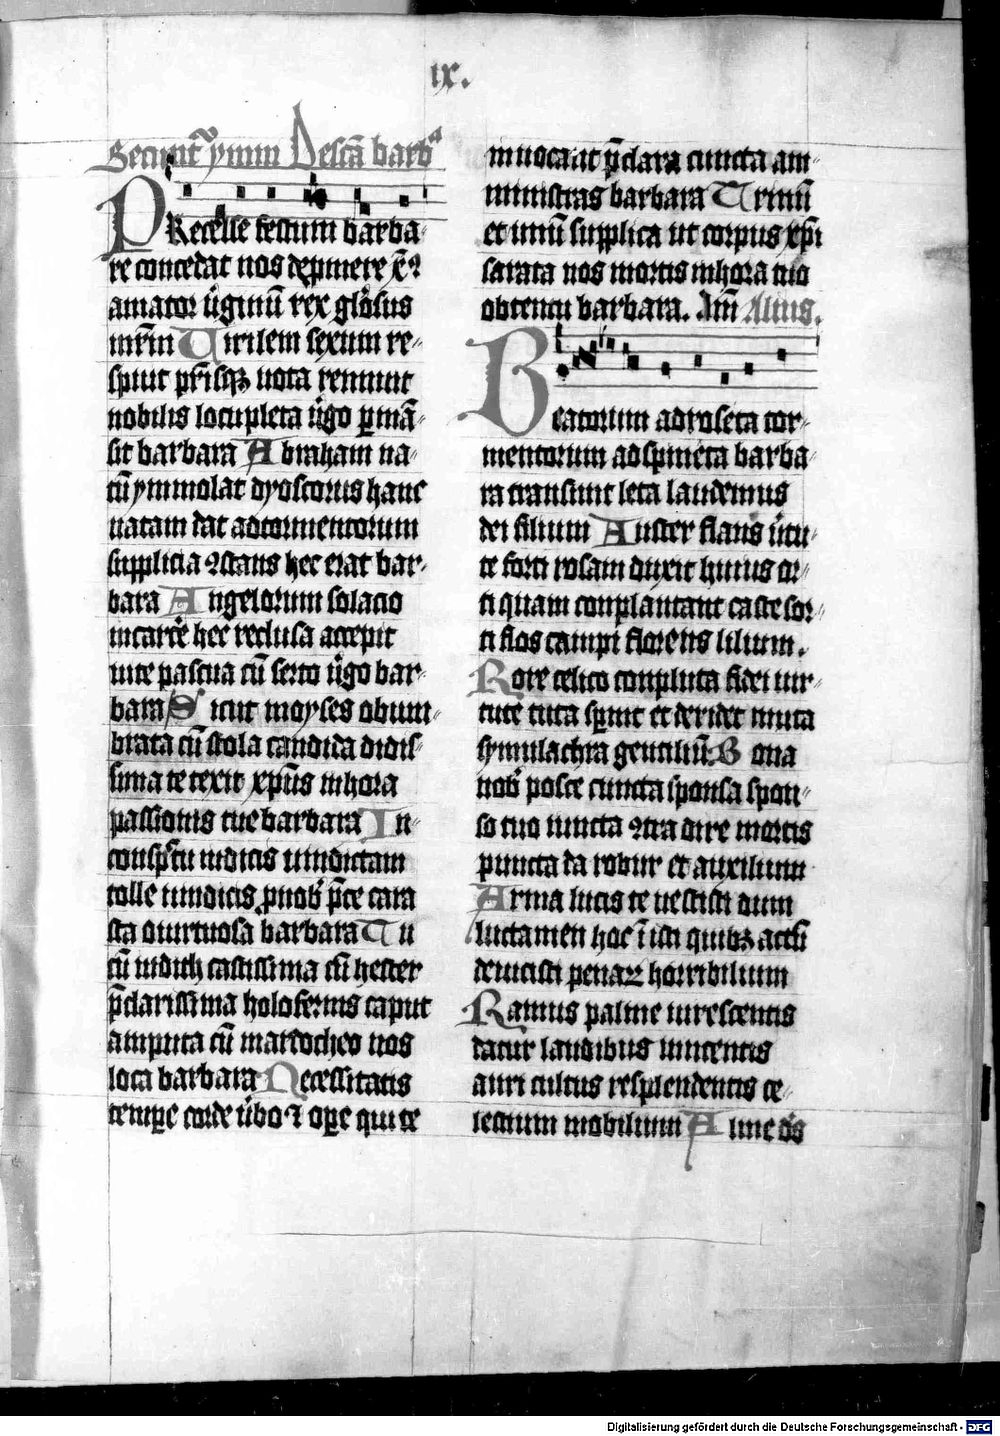 ix.
Secunt᷒ ymni De scā barbᵃ
PRecelse festum barba⸗
re concedat nos dep̄mere xp̄c
amator v̄ginū rex glōsus
inr̄im Virilem sexum re⸗
spuit pr̄isqȝ vota rennuit
nobilis locupleta v̄go p̱mā⸗
sit barbara Abraham na⸗
tū ymmolat dyoscorus hanc
natam dat ad tormentorum
supplicia ꝯstans hec erat bar⸗
bara Angelorum solacio
in carc̄e hec reclusa accepit
vite pascua cū serto v̄go bar⸗
bara Sicut moyses obum⸗
brata cū stola candida didis⸗
sima te texit xp̄us in hora
passionis tue barbara In
consp̄tu iudicis vindictam
tolle vindicis ꝓ nob̄ p̄ce cara
sta o virtuosa barbara Tu
cū iudith castissima cū hester
p̄clarissima holofernis caput
amputa cū mardocheo nos
loca barbara Necessitatis
temp̱e corde v̄bo ⁊ op̱e qui te
invocat p̄clara cuncta am⸗
ministras barbara Trinū
et unū supplica ut corpus xp̄i
sacrata nos mortis in hora tuo
obtentu barbara. Am̄ Alius.
Beatorum ad roseta tor⸗
mentorum ad spineta barba⸗
ra transiuit leta laudemus
dei filium Auster flans v̄tu⸗
te forti rosam duxit huius or⸗
ti quam conplantant caste sor⸗
ti flos campi florens lilium.
Rore celico conpluta fidei vir⸗
tute tuta sp̱nit et deridet muta
symulachra gentiliū Bona
nob̄ posce cuncta sponsa spon⸗
so tuo iuncta ꝯtra dire mortis
puncta da robur et auxilium
Arma lucis te vestisti dum
luctamen hoc īisti quibȝ actū
deuicisti penaꝝ horribilium
Ramus palme virescentis
datur laudibus vincentis
auri cultus resplendentis ce⸗
lestium mobilium Alme ds̄
Digitalisierung gefördert durch die Deutsche Forschungsgemeinschaft - DFG